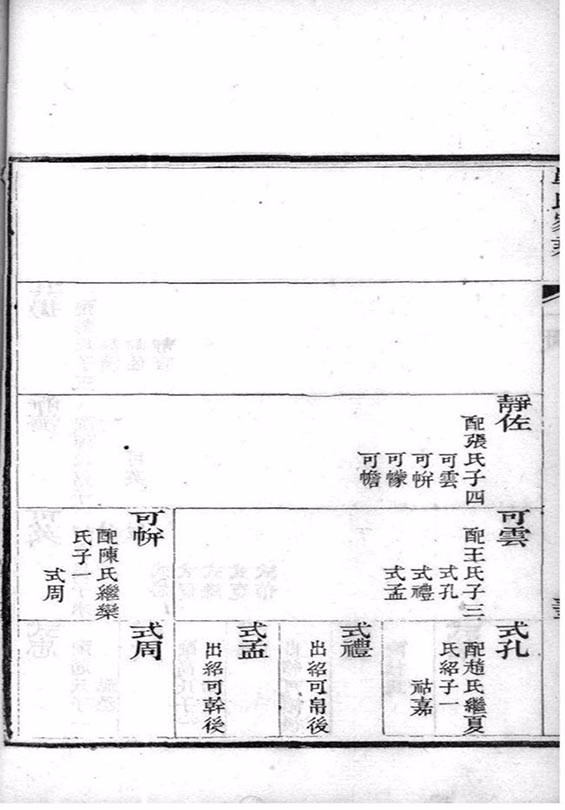 靜佐
配張氏子四
可雲
可帡
可幪
可幨
可雲
配王氏子三
式孔
式禮
式孟
可帡
配陳氏繼欒
氏子一
式周
式孔
配趙氏繼夏
氏紹子一
祜嘉
式禮
出紹可帛後
式孟
出紹可幹後
式周